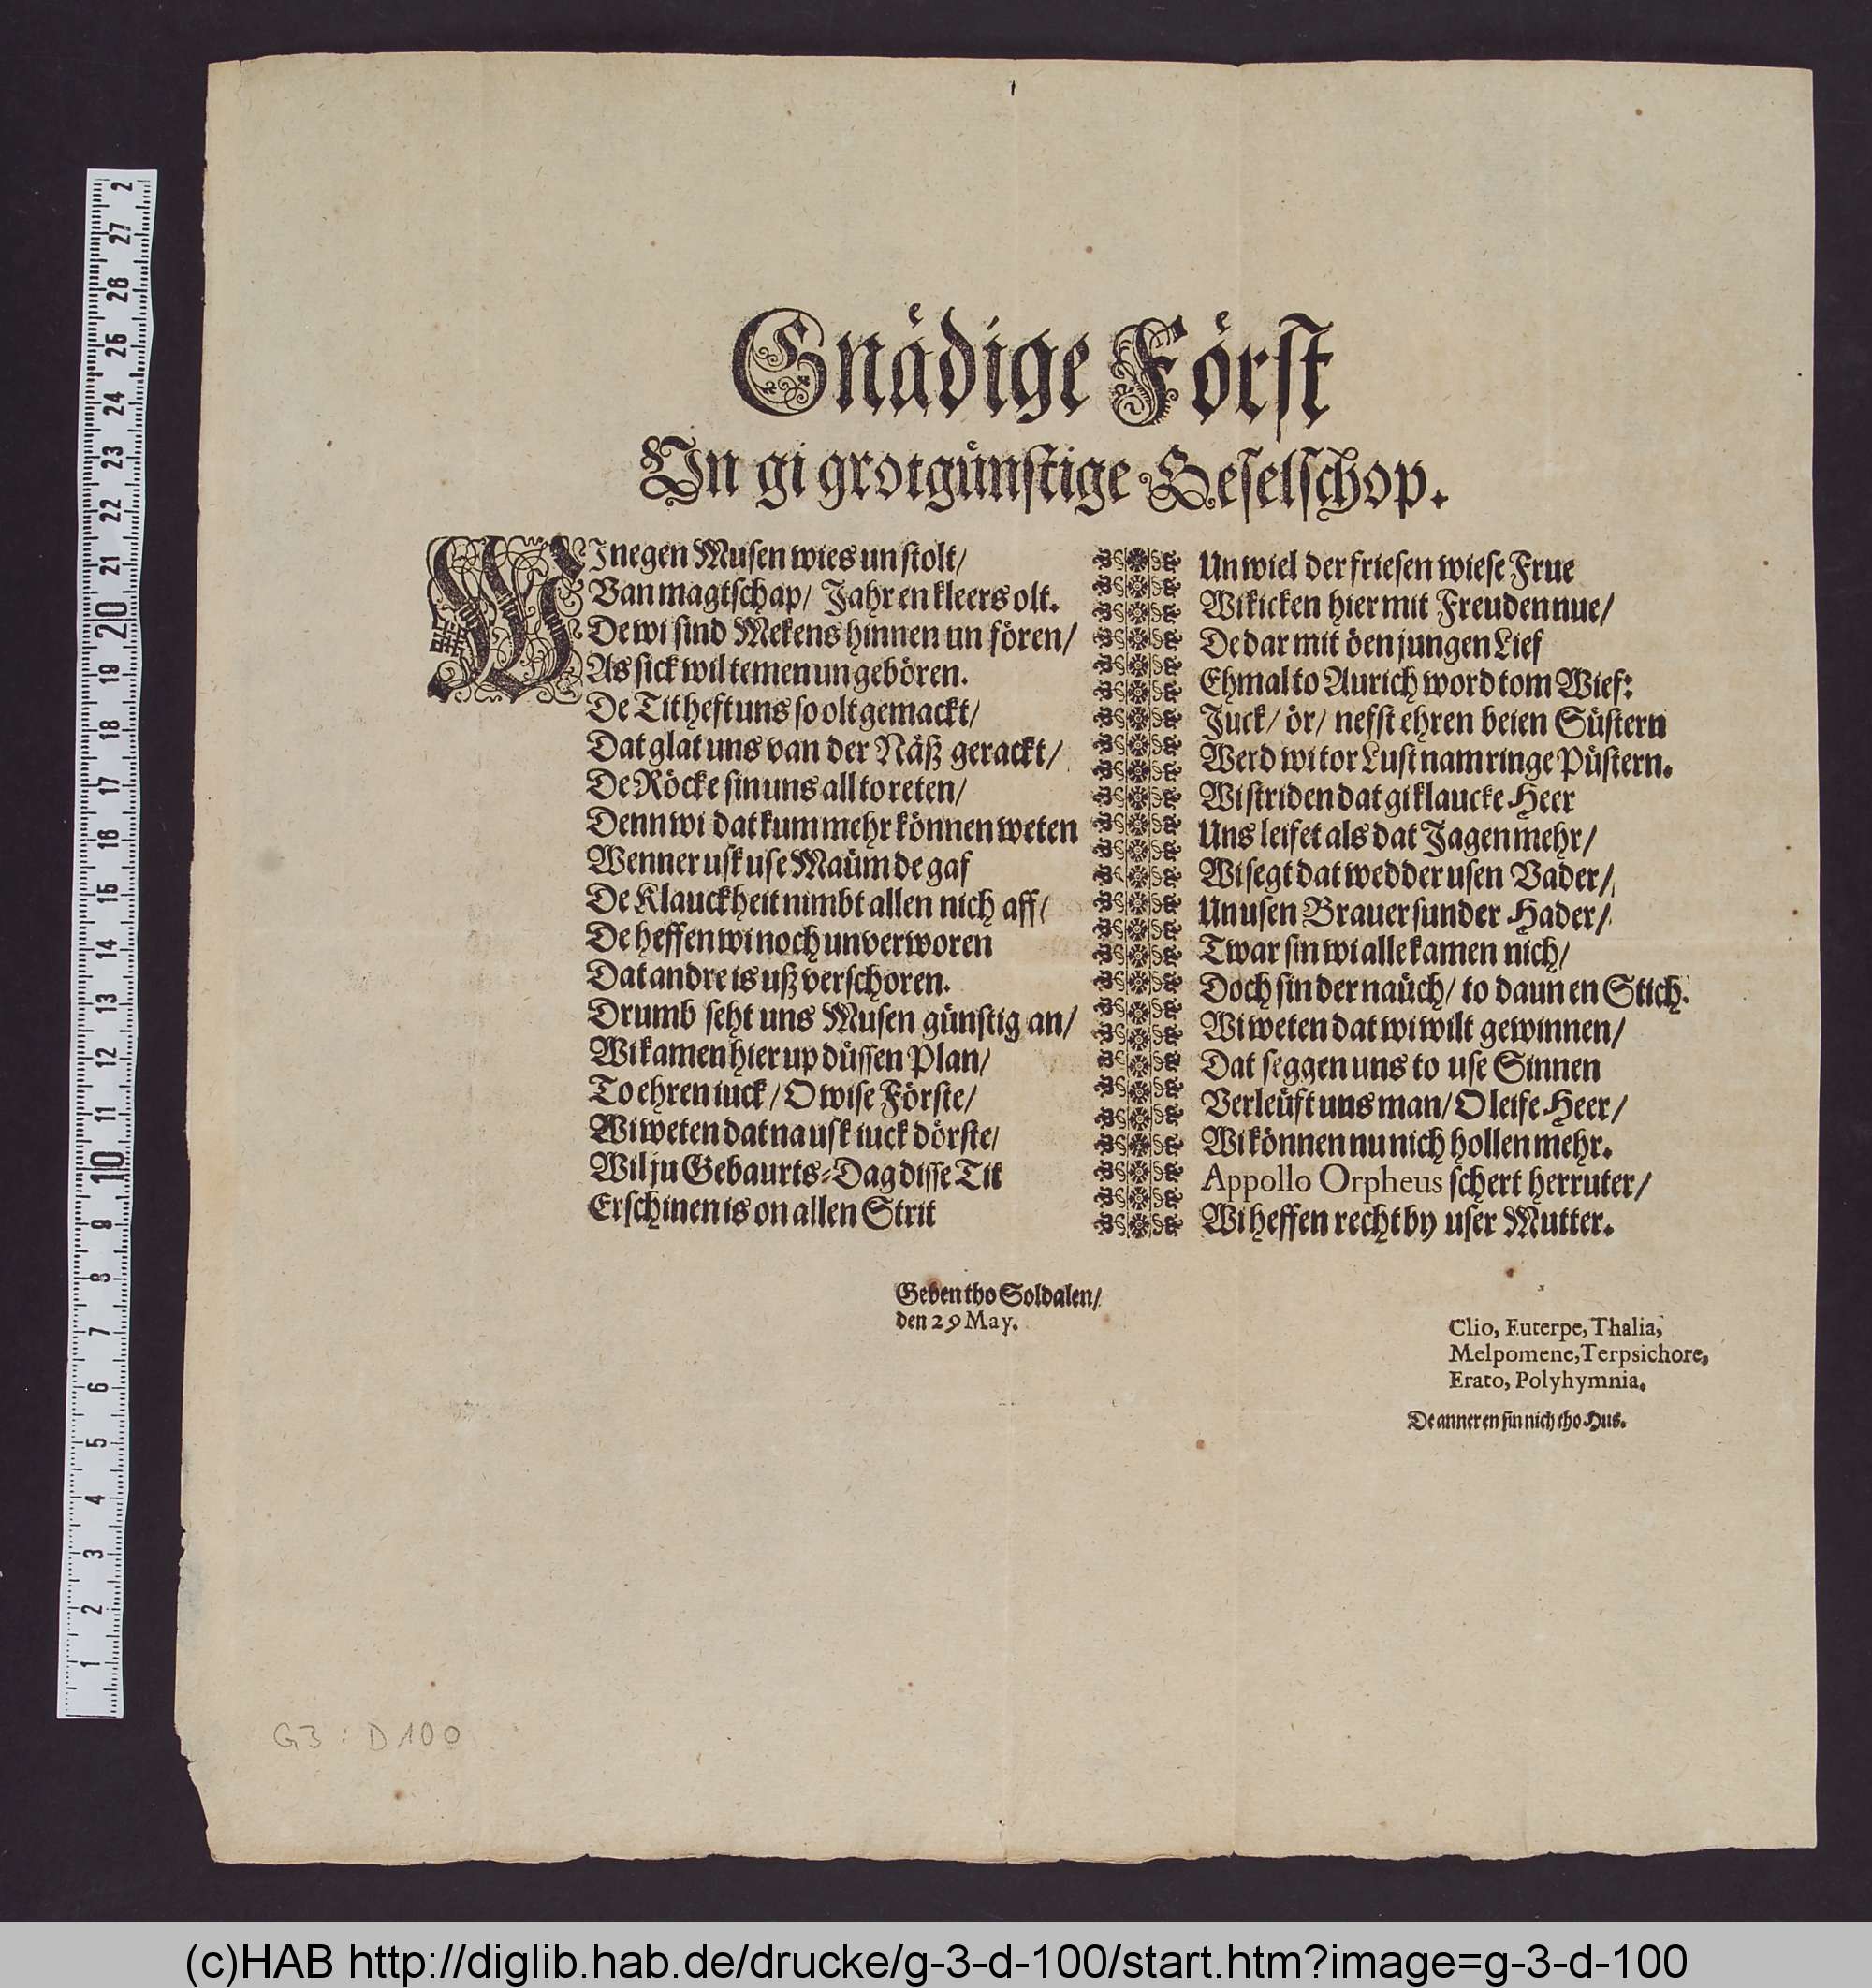 Gnädige Först
Un gi grotgünstige Geselschop.
WI negen Musen wies un stolt/
Van magtschap/ Jahr en kleers olt.
De wi sind Mekens hinnen un fören/
As sick wil temen un gebören.
De Tit heft uns so olt gemackt/
Dat glat uns van der Näß gerackt/
De Röcke sin uns all to reten/
Denn wi dat kum mehr können weten
Wenner usk use Maüm de gaf
De Klauckheit nimbt allen nich aff/
De heffen wi noch unverworen
Dat andre is uß verschoren.
Drumb seht uns Musen günstig an/
Wi kamen hier up düssen Plan/
To ehren iuck/ O wise Förste/
Wi weten dat na usk iuck dörste/
Wil ju Gebaurts-Dag disse Tit
Erschinen is on allen Strit
Un wiel der friesen wiese Frue
Wi kicken hier mit Freuden nue/
De dar mit öen jungen Lief
Ehmal to Aurich word tom Wief:
Juck/ ör/ nefst ehren beien Süstern
Werd wi tor Lust nam ringe Püstern.
Wi striden dat gi klaucke Heer
Uns leifet als dat Jagen mehr/
Wi segt dat wedder usen Vader/
Un usen Brauer sunder Hader/
Twar sin wi alle kamen nich/
Doch sin der naüch/ to daun en Stich.
Wi weten dat wi wilt gewinnen/
Dat seggen uns to use Sinnen
Verleüft uns man/ O leife Heer/
Wi können nu nich hollen mehr.
Appollo Orpheus schert herruter/
Wi heffen recht by user Mutter.
Geven tho Soldalen/
den 29 May.
Clio, Euterpe, Thalia,
Melpomene, Terpsichore,
Erato, Polyhymnia.
De anneren sin nich tho Hus.
G3 : D 100
(c)HAB http://diglib.hab.de/drucke/g-3-d-100/start.htm?image=g-3-d-100